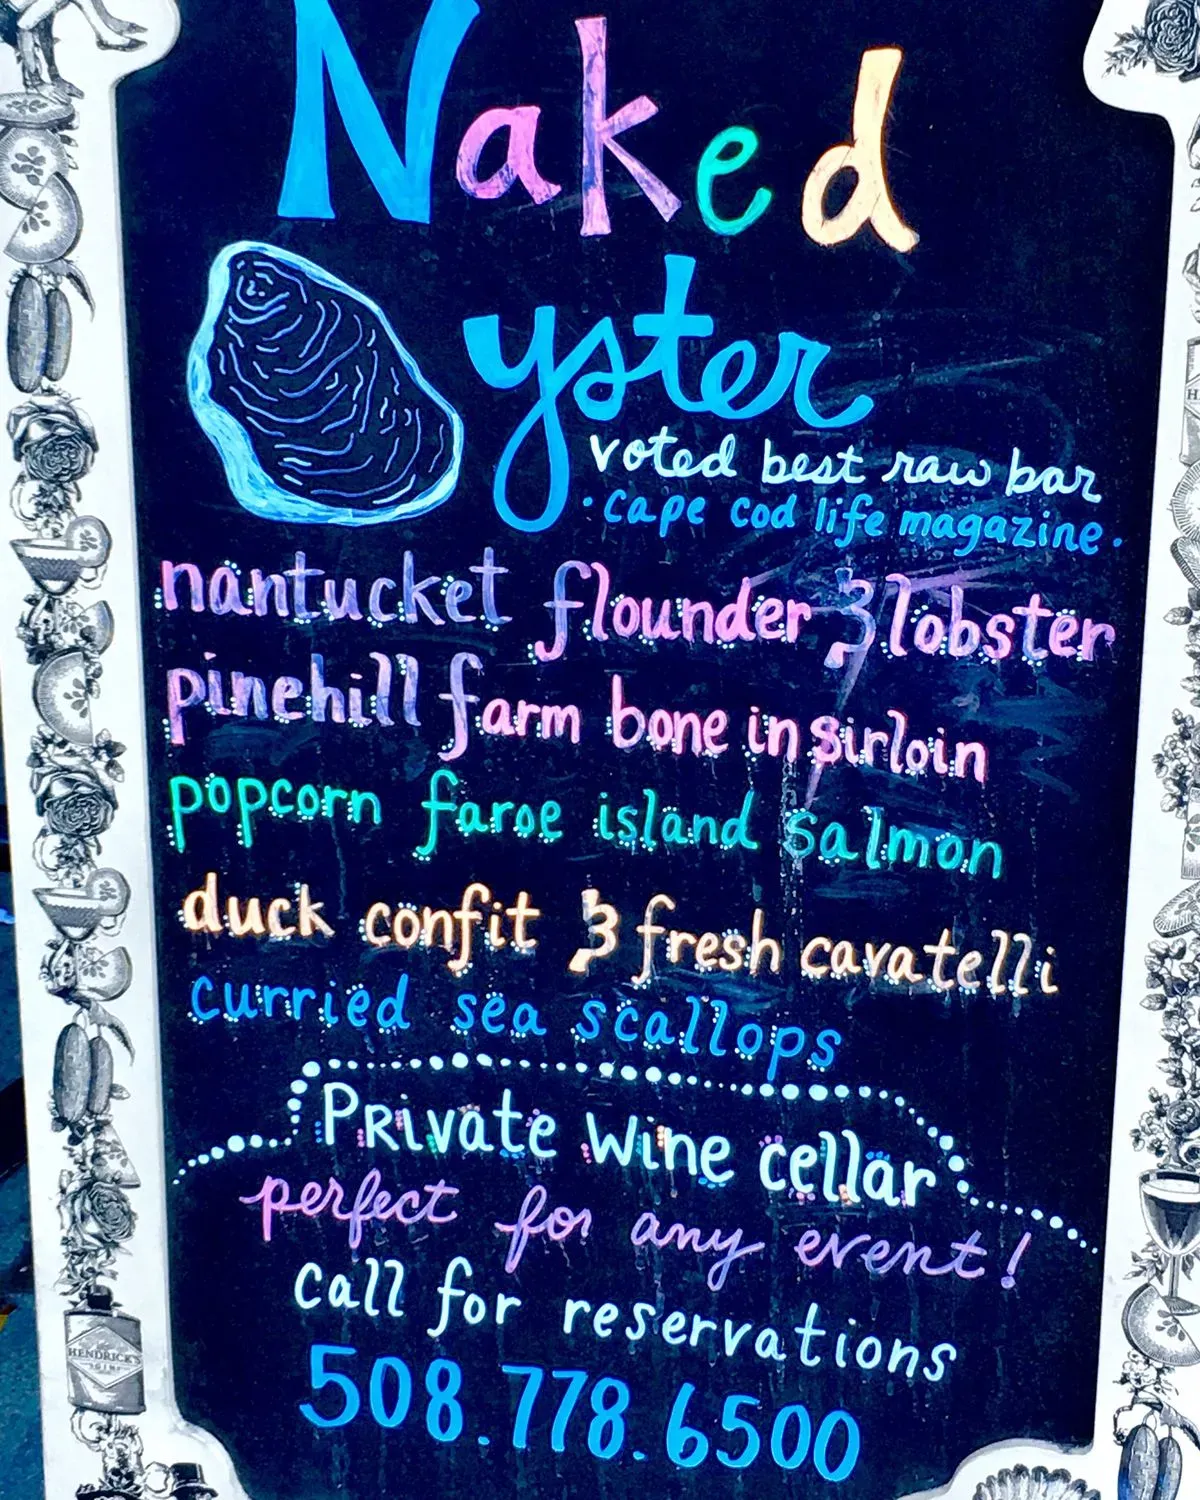 Naked
Oyster
voted best raw bar
· cape cod life magazine ·
nantucket flounder & lobster
pinehill farm bone in sirloin
popcorn faroe island salmon
duck confit & fresh cavatelli
curried sea scallops
Private Wine cellar
perfect for any event!
call for reservations
508.778.6500
HENDRICK'S
GIN